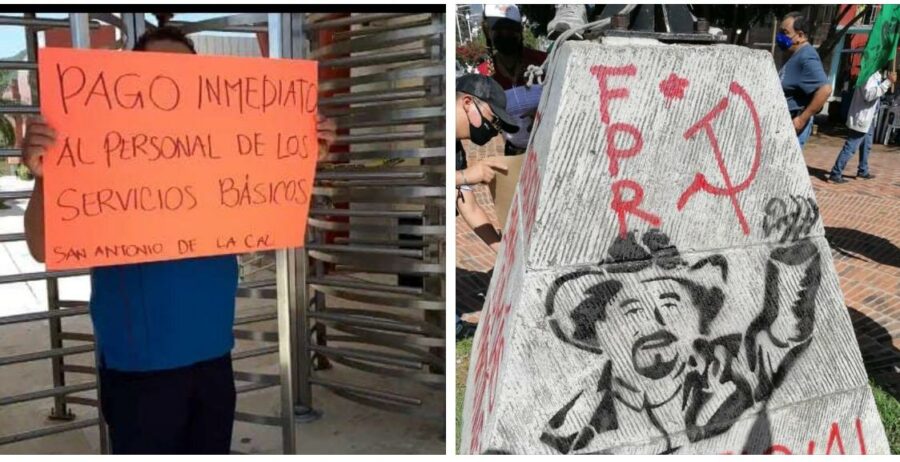 PAGO INMEDIATO
AL PERSONAL DE LOS
SERVICIOS BÁSICOS
SAN ANTONIO DE LA CAL
FPR